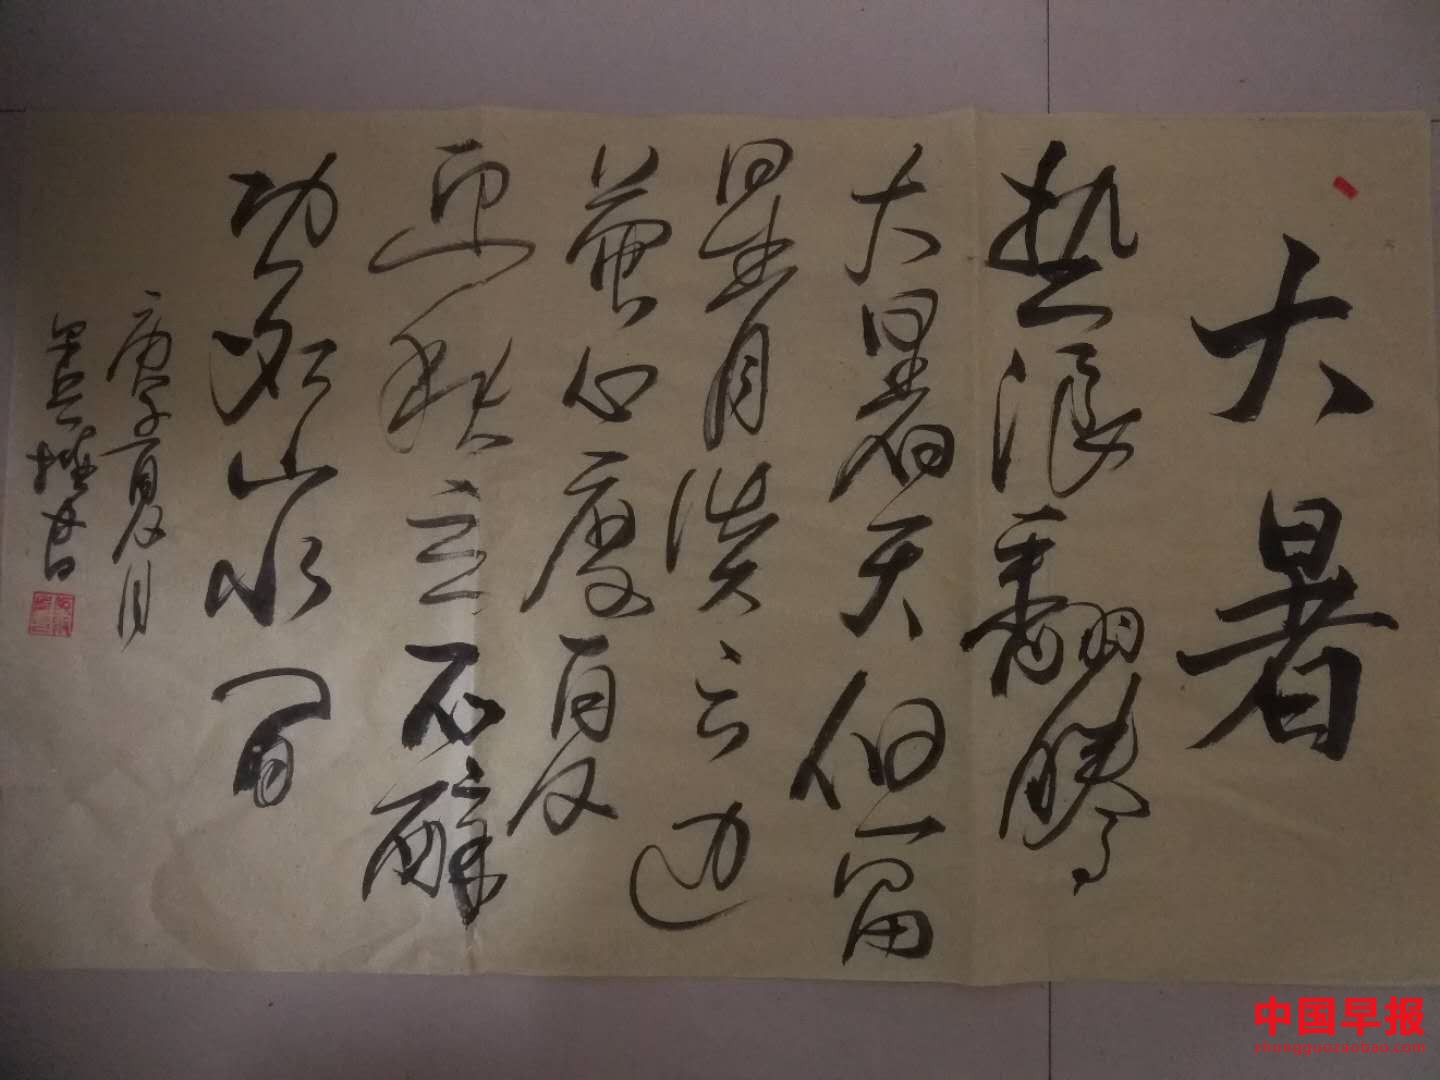 大暑
热浪翻腾
大暑天但留
星月淡云边
兰心度夏
迎秋立不醉
功名山水间
庚子夏月
中国早报
zhongguozaobao.com